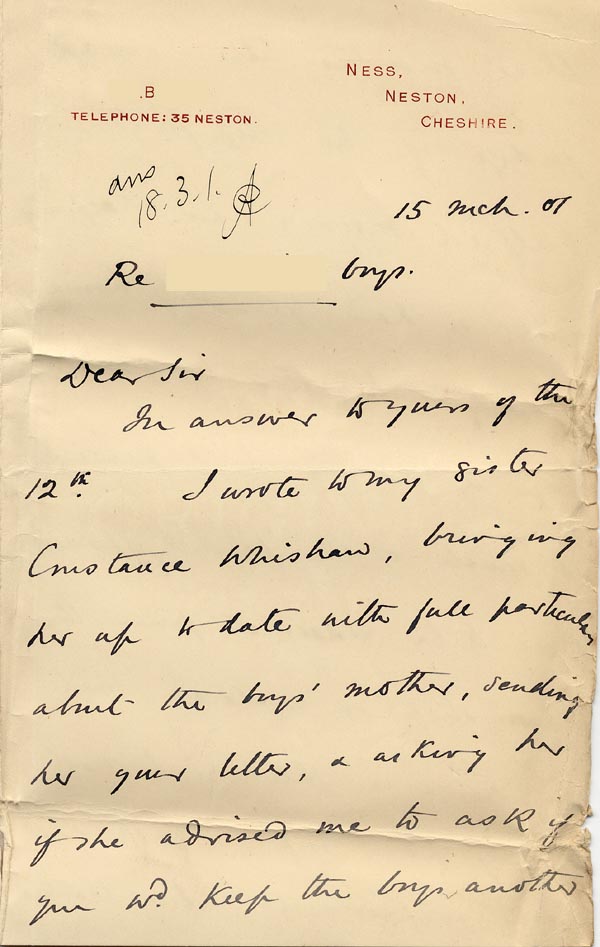 NESS,
.B
NESTON,
TELEPHONE: 35 NESTON.
CHESHIRE.
ans
18.3.1.
15 Mch. 01
Re boys.
Dear Sir
In answer to yours of the
12th. I wrote to my sister
Constance Whishaw, bringing
her up to date with full particulars
about the boys' mother, sending
her your letter, & asking her
if she advised me to ask if
you wd. keep the boys another